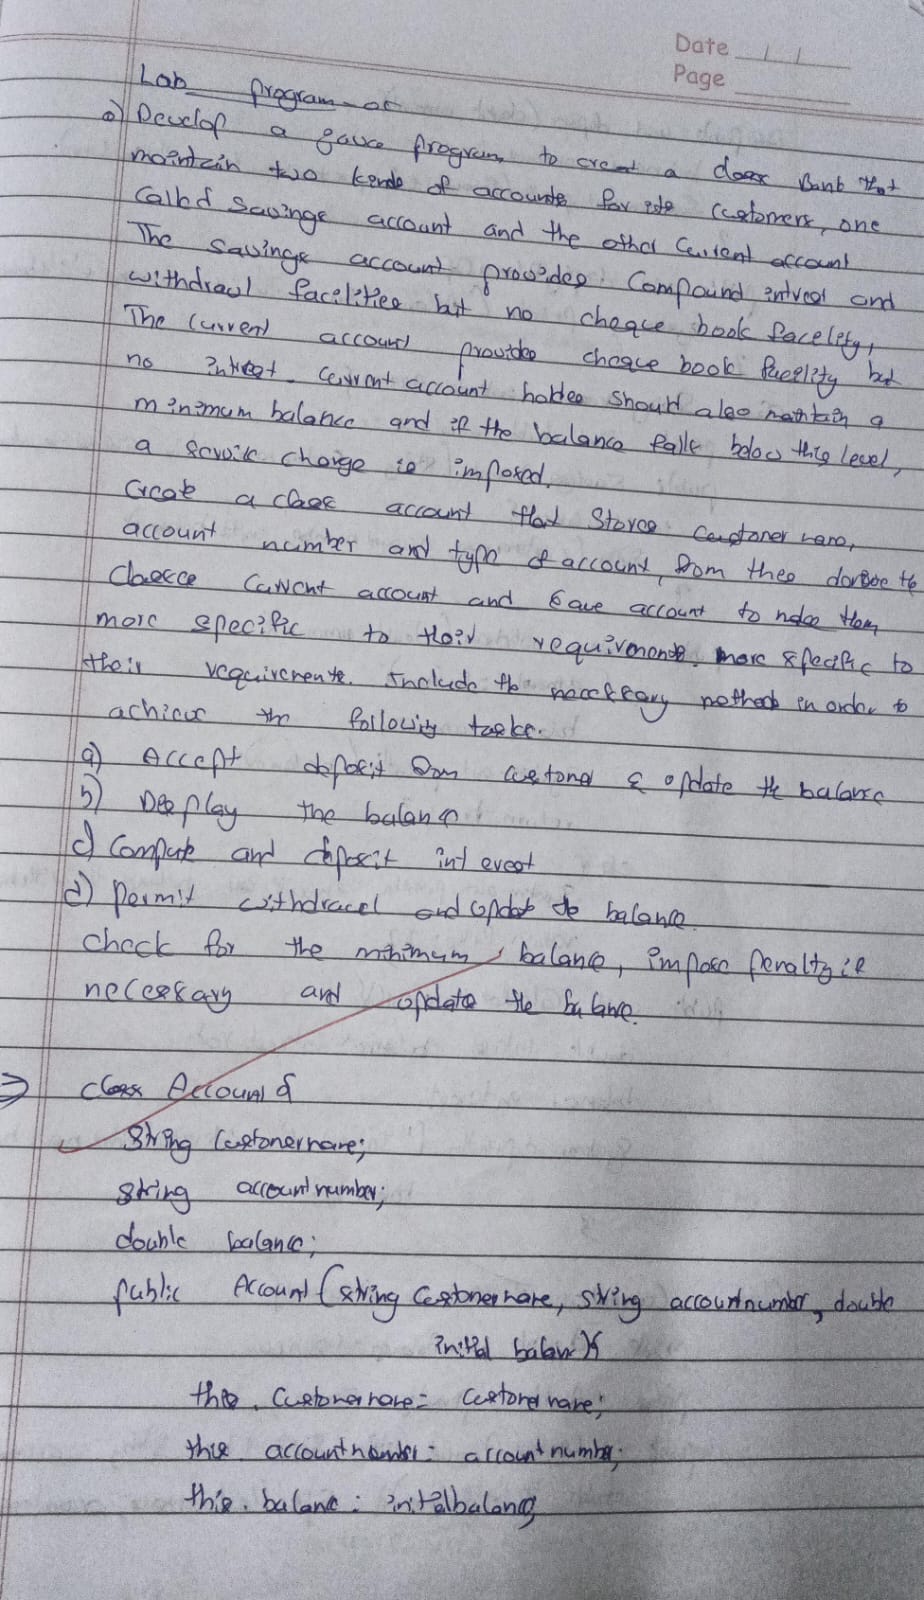 Date / /
Page
Lab program - 05
a) Develop a Java program to creat a class Bank that
maintain two kinds of accounts for its customers, one
called savings account and the other current account
The savings account provides compound intrest and
withdrawl facilities but no cheque book facility,
The current account provides cheque book facility but
no intrest. current account holder should also maintain a
minimum balance and if the balance falls below this level,
a service charge is imposed.
Create a class account that stores customer name,
account number and type of account, from this derive the
classes current account and save account to make them
more specific to their requirements. more specific to
their requirements. Include the necessary methods in order to
achieve the following tasks.
a) Accept deposit from customer & update the balance
b) Display the balance
c) Compute and deposit interest
d) Permit withdrawal and update the balance.
check for the minimum balance, impose penalty if
necessary and update the balance.
=> class Account {
String Customername;
String accountnumber;
double balance;
public Account (String Customername, String accountnumber, double
initial balance) {
this. Customername = customername;
this accountnumber = accountnumber;
this. balance = initialbalance;